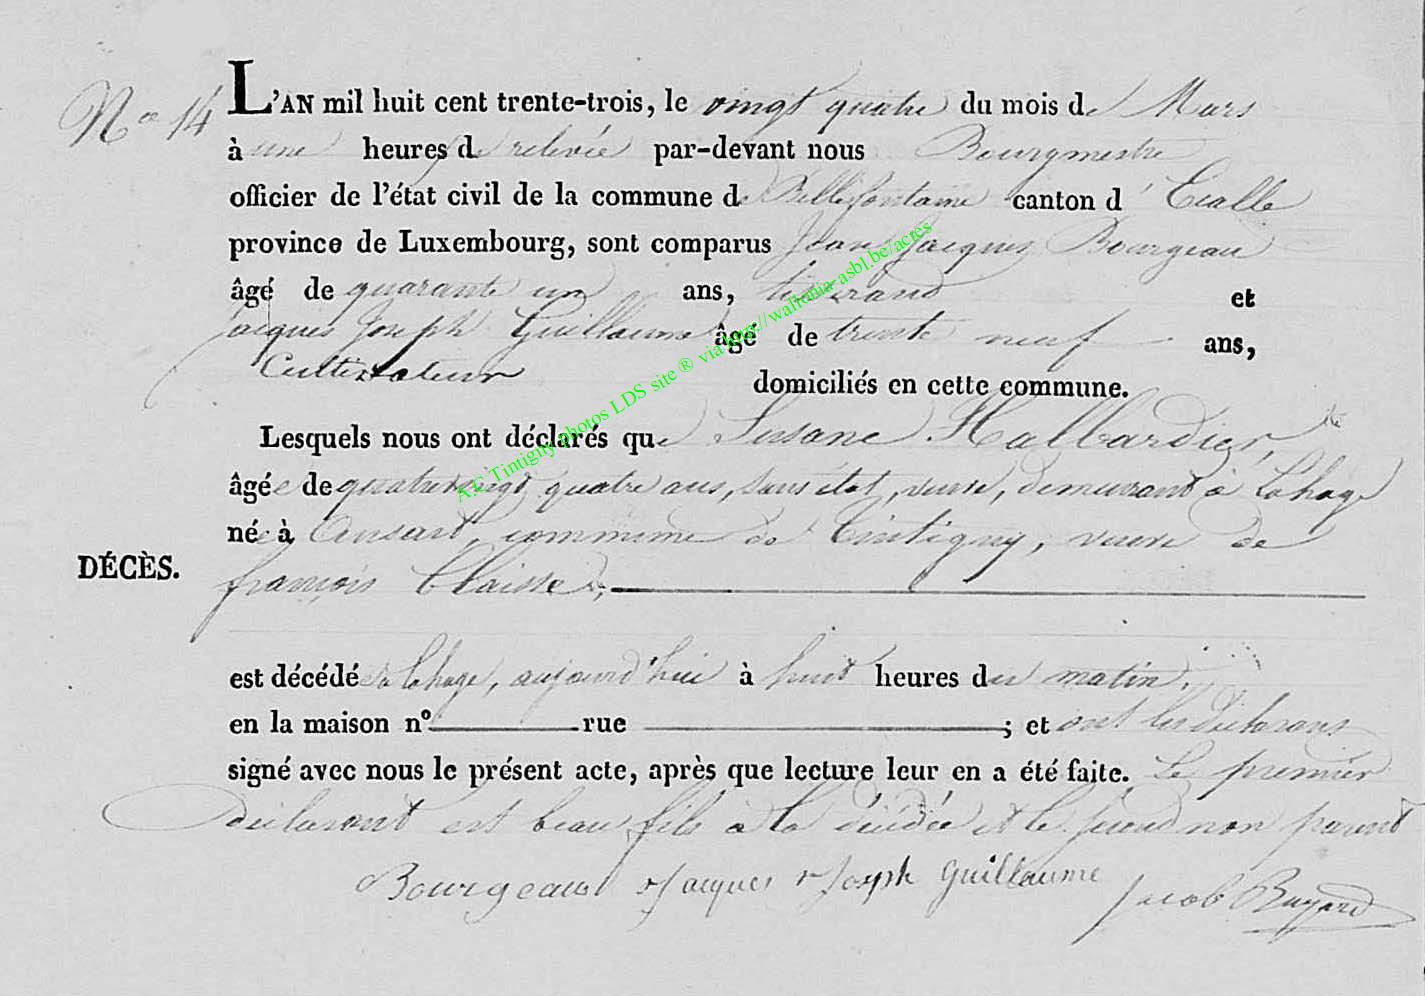 Nº 14
L'AN mil huit cent trente-trois, le vingt quatre du mois de Mars
à une heures de relevée par-devant nous Bourgmestre
officier de l'état civil de la commune de Bellefontaine canton d' Etalle
province de Luxembourg, sont comparus Jean Jacques Bourgeau
âgé de quarante un ans, tisserand et
jacques Joseph Guillaume âgé de trente neuf ans,
Cultivateur domiciliés en cette commune.
Lesquels nous ont déclarés que Susane Halbardier,
âgée de quatre vingt quatre ans, sans état, veuve, demeurant à Lahage
née à Ansart, commune de Tintigny, veuve de
DÉCÈS.
françois Claisse,
est décédée à Lahage, aujourd'hui à huit heures du matin.
en la maison nº rue ; et ont les déclarans
signé avec nous le présent acte, après que lecture leur en a été faite. Le premier
déclarant est beau fils à la décédée et le second non parent
Bourgeau Jacques Joseph Guillaume Jacob
A.C Tintigny photos LDS site ® via http://wallonia-asbl.be/actes